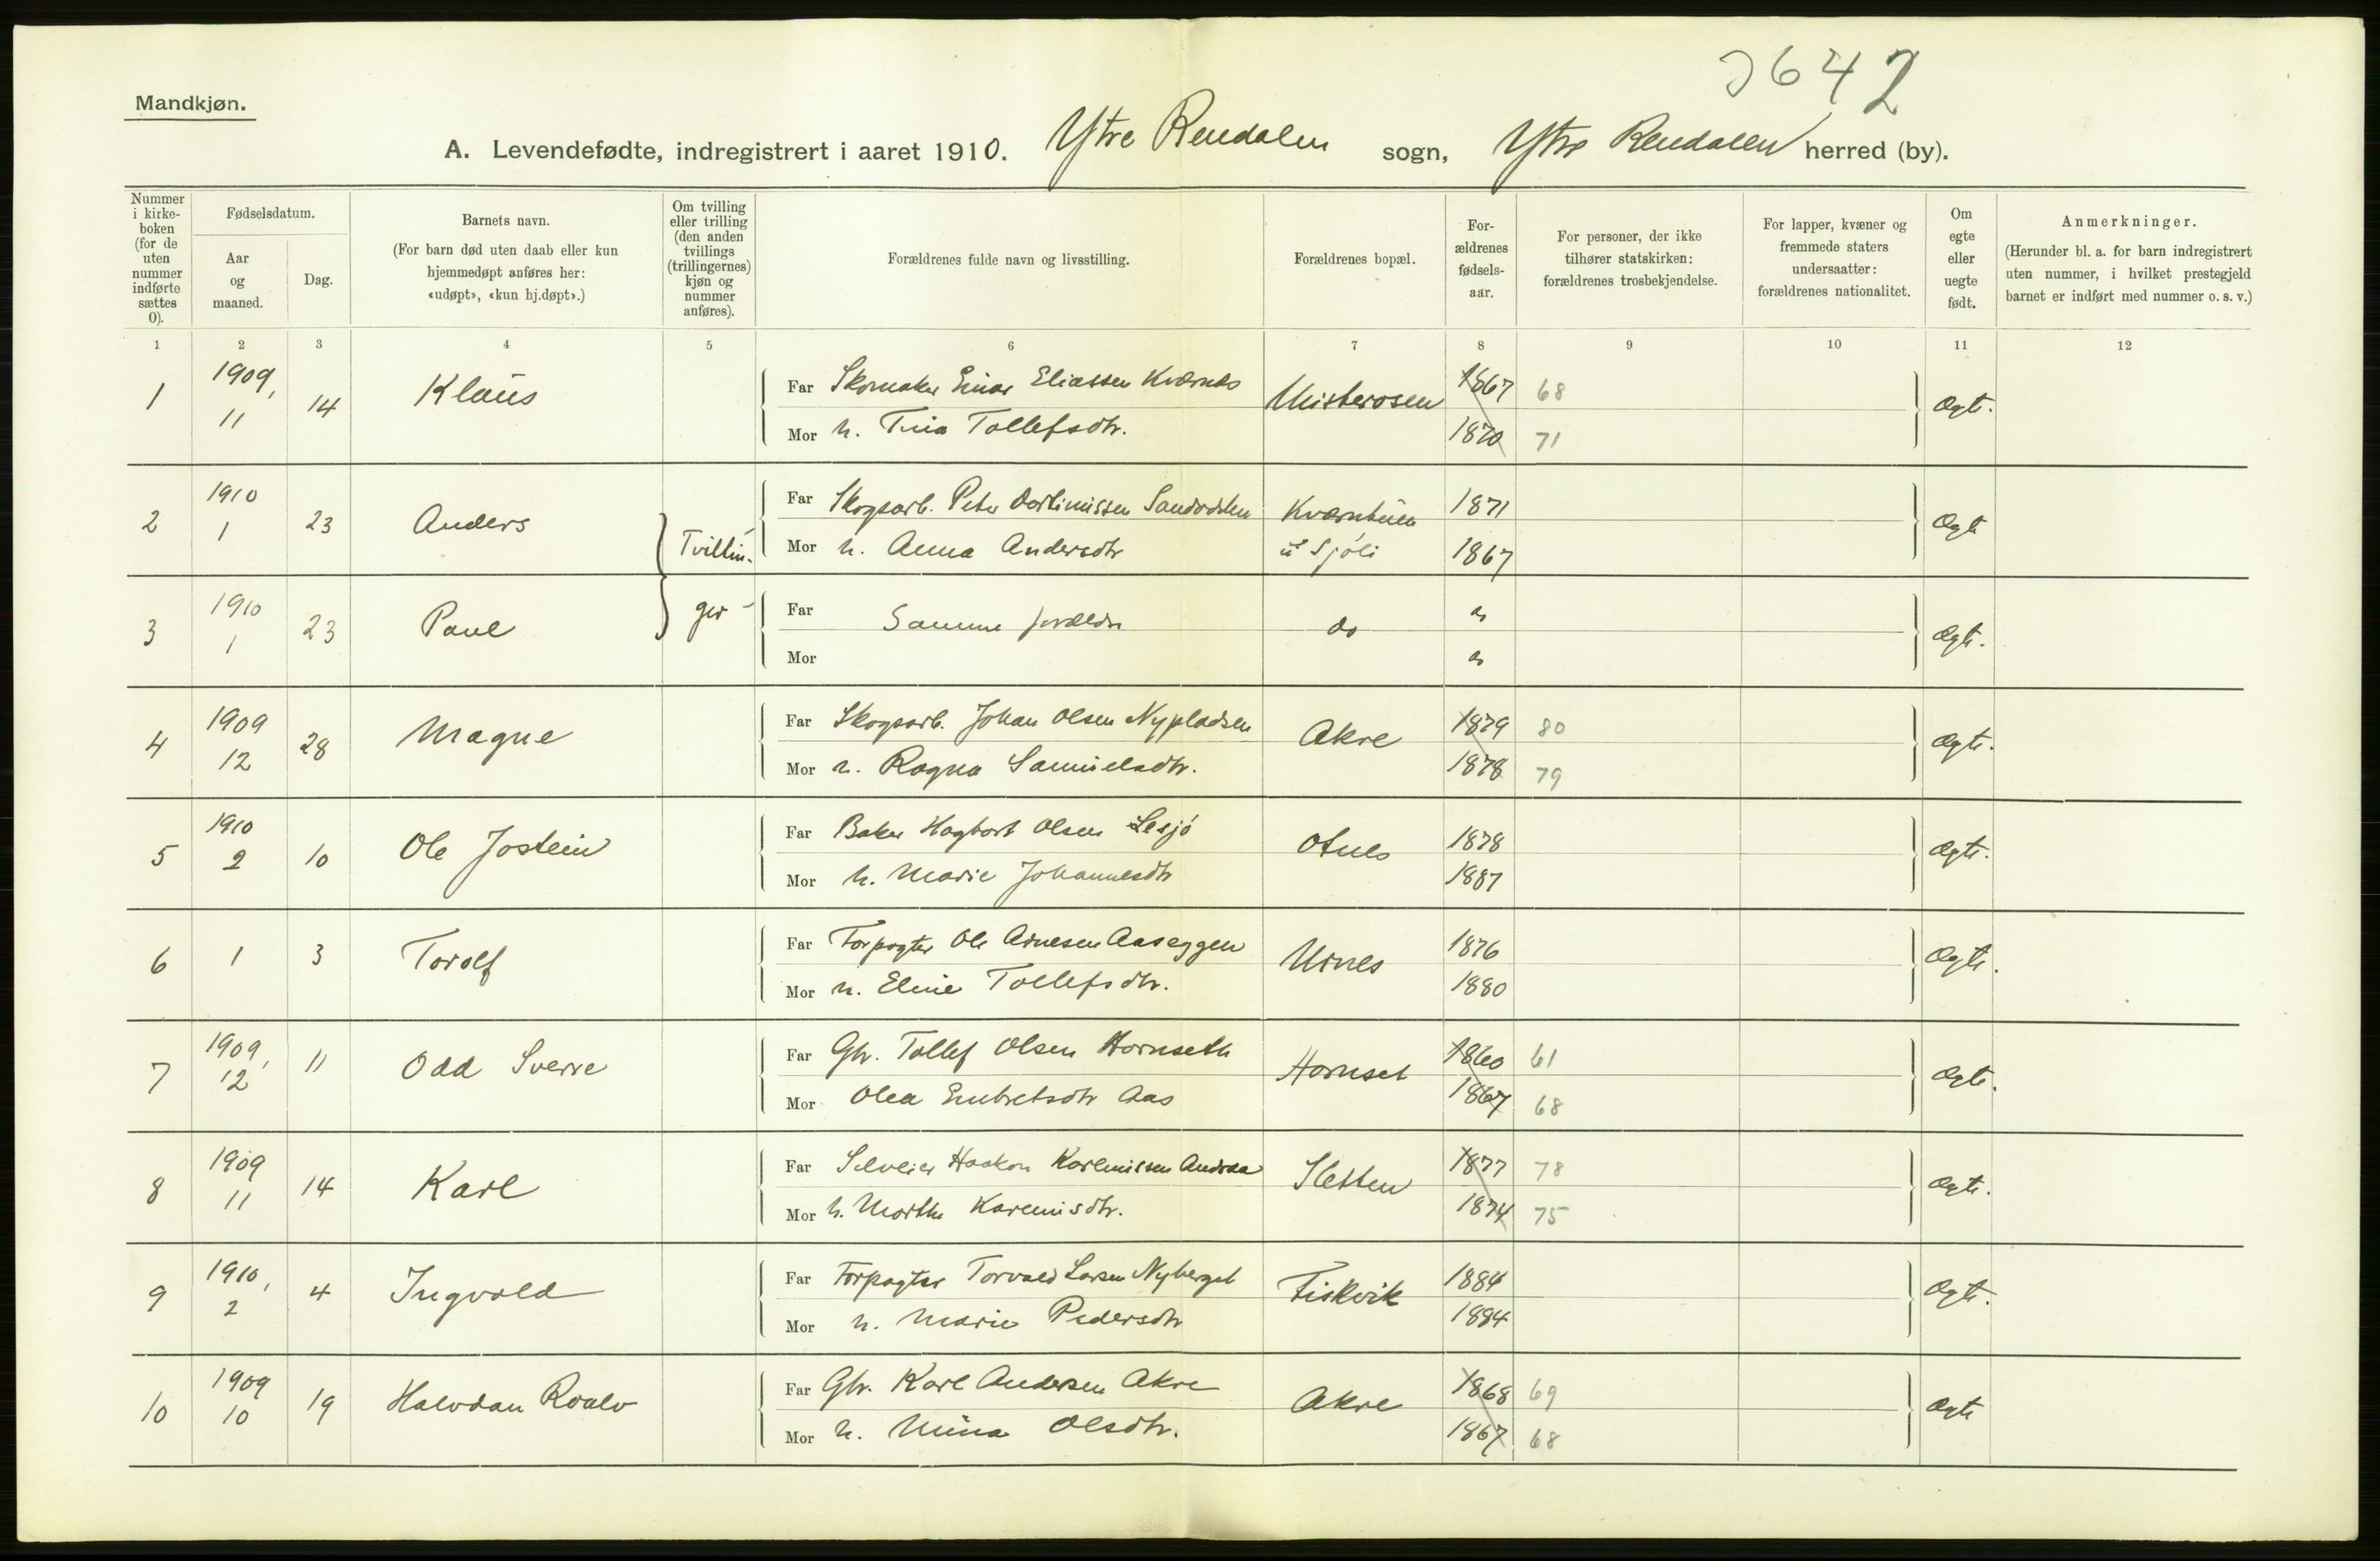 3642
Mandkjøn.
A. Levendefødte, indregistrert i aaret 1910. Ytre Rendalen sogn, Ytre Rendalen herred (by).
Nummer i kirke- boken (for de uten nummer indførte sættes 0).
Fødselsdatum.
Aar og maaned.
Dag.
Barnets navn.
(For barn død uten daab eller kun hjemmedøpt anføres her: «udøpt», «kun hj.døpt».)
Om tvilling eller trilling (den anden tvillings (trillingernes) kjøn og nummer anføres).
Forældrenes fulde navn og livsstilling.
Forældrenes bopæl.
For- ældrenes fødsels- aar.
For personer, der ikke tilhører statskirken: forældrenes trosbekjendelse.
For lapper, kvæner og fremmede staters undersaatter: forældrenes nationalitet.
Om egte eller uegte født.
Anmerkninger.
(Herunder bl. a. for barn indregistrert uten nummer, i hvilket prestegjeld barnet er indført med nummer o. s. v.)
1 2 3 4 5 6 7 8 9 10 11 12
1 1909, 11 14 Klaus Far Skomaker Einar Eliassen Kværnes Misterosen 1867 68 Ægte.
Mor h. Tina Tollefsdtr. 1870 71
2 1910 1 23 Anders Tvillin- Far Skogsarb. Peter Sandodden 1871 Ægte
Mor h. Anna Andersdtr u/ Sjöli 1867
3 1910 1 23 Paul ger - Far Samme forældre do do Ægte.
Mor do
4 1909 12 28 Magne Far Skogsarb. Johan Olsen Nypladsen Akre 1879 80 Ægte.
Mor h. Ragna Samuelsdtr. 1878 79
5 1910 2 10 Ole Jostein Far Baker Hagbart Olsen Lesjö Otnes 1878 Ægte.
Mor h. Marie Johannesdtr 1887
6 1 3 Torolf Far Forpagter Ole Arnesen Aaseggen Urnes 1876 Ægte.
Mor h. Eline Tollefsdtr. 1880
7 1909, 12 11 Odd Sverre Far Gbr. Tollef Olsen Hornseth Hornset 1860 61 Ægte.
Mor Olea Embretsdtr Aas 1867 68
8 1909 11 14 Karl Far Selveier Haakon Karlmissen Andraa Sletten 1877 78 Ægte.
Mor h. Marthe Karenusdtr. 1874 75
9 1910, 2 4 Ingvald Far Forpagter Torvald Larsen Nyberget Fiskvik 1884 Ægte.
Mor h. Marie Pedersdtr 1884
10 1909 10 19 Halvdan Roald Far Gbr. Karl Andersen Akre Akre 1868 69 Ægte
Mor h. Mina Olsdtr. 1867 68